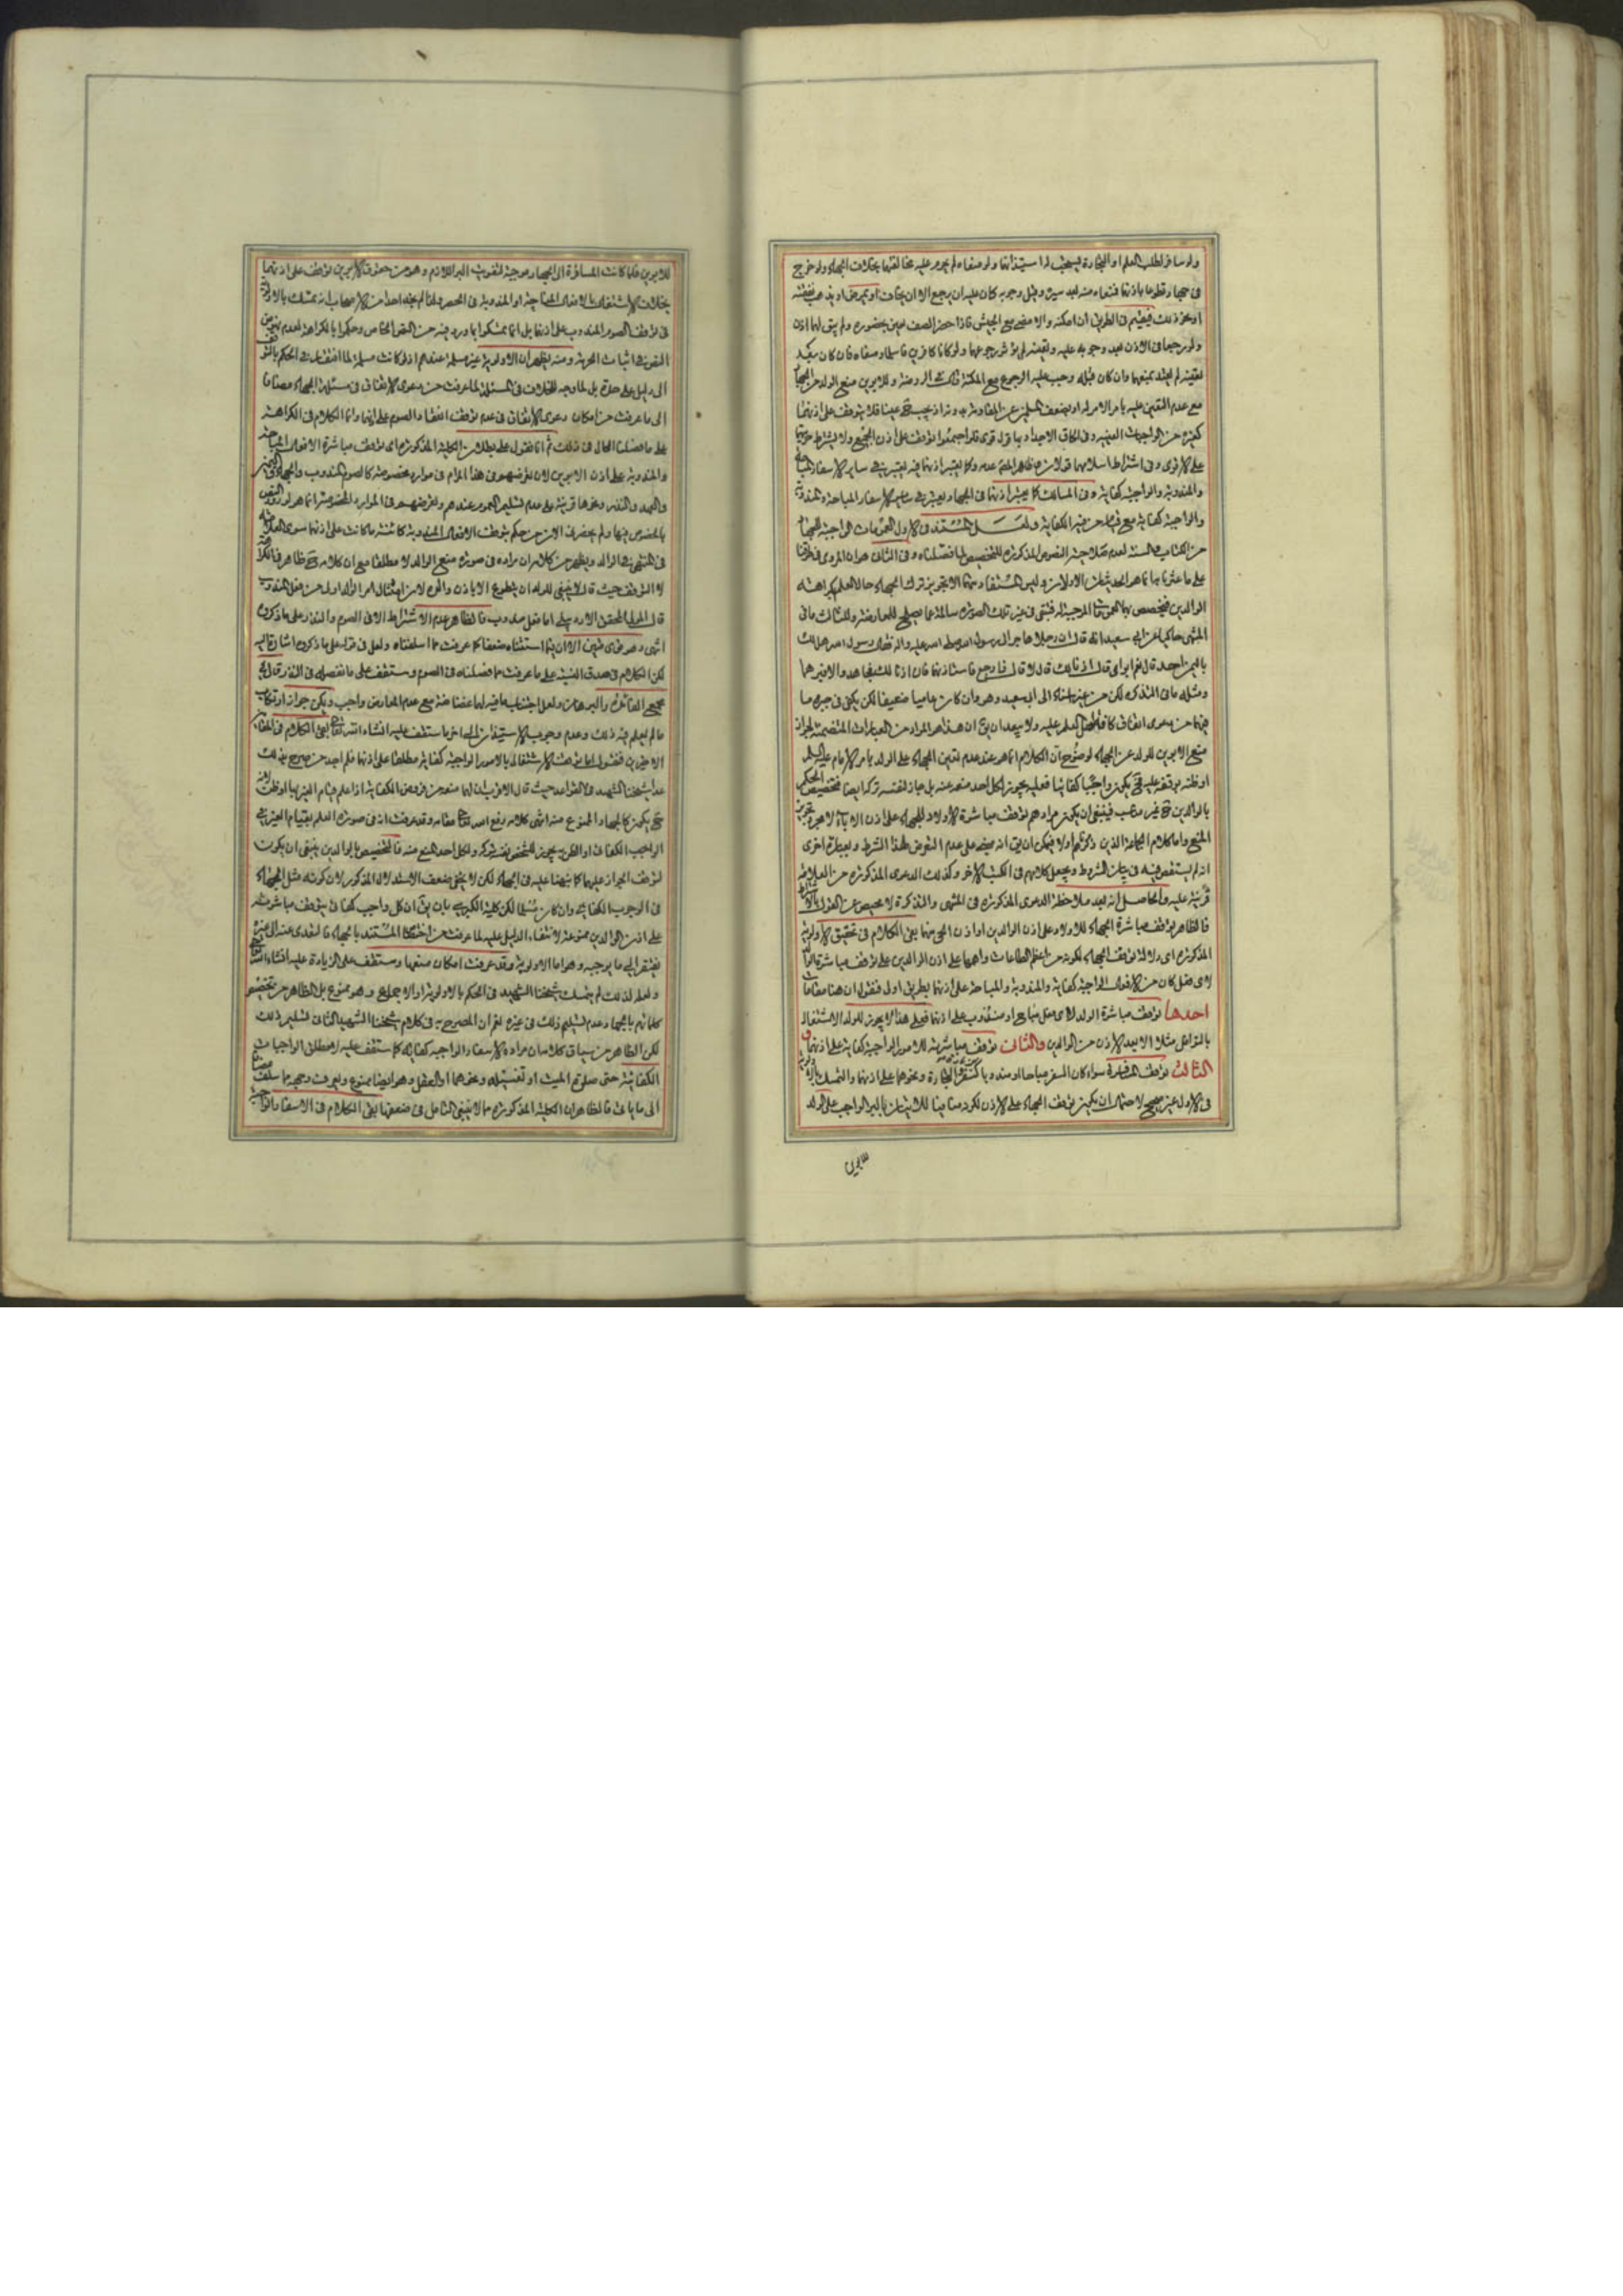 ولو سافر لطلب العلم او التجارة يستحب له استيذانهما ولو منعاه لم يحرم عليه مخالفتهما بخلاف الجهاد ولو خرج
في جهاد تطوعا باذنهما فمنعاه منه بعد سيره وقبل وجوبه كان عليه ان يرجع الا ان يخاف او يمرض او يذهب نفقته
او نحو ذلك فيقيم في الطريق ان امكنه والا مضى مع الجيش فاذا حضر الصف تعين بحضوره ولم يبق لهما اذن
ولو رجعا في الاذن بعد وجوبه عليه وتعينه لم يؤثر رجوعهما ولو كانا كافرين فاسلما ومنعاه فان كان بعد
تعينه لم يعتد بمنعهما وان كان قبله وجب عليه الرجوع مع المكنة
مع عدم التعين عليه بامر الامام له او بضعف المسلمين عن المقاومة بدونه اذ يجب ح عينا فلا يتوقف على اذنهما
كغيره من الواجبات العينية وفي الحاق الاجداد بهما قول قوي فلو اجتمعوا توقف على اذن الجميع ولا يشترط حريتهما
على الاقوى وفي اشتراط اسلامهما قولان وظاهر المص عدمه وكما يعتبر اذنهما فيه يعتبر في ساير الاسفار المباحة
والمندوبة والواجبة كفاية وفي المسالك كما يعتبر اذنهما في الجهاد يعتبر في ساير الاسفار المباحة والمندوبة
والواجبة كفاية مع قيام من فيه الكفاية ولعل المستند في الاول العمومات الواجبة للجهاد
من الكتاب والسنة لعدم صلاحية النصوص المذكورة للتخصيص لما فصلناه وفي الثاني هو ان المروي في طرقنا
على ما عثرنا بهما هو الحديثان الاولان وليس المستفاد منهما الا تجويز ترك الجهاد حال العلم بكراهة
الوالدين فيخصص بهما العمومات الموجبة له فتبقى في غير تلك الصورة سالمة عما يصلح للمعارضة وللثالث ما في
المنتهى حاكيا عن ابي سعيد انه قال ان رجلا هاجر الى رسول الله صلى الله عليه واله فقال رسول الله هل لك
باليمن احد قال نعم ابواي قال اذنا لك قال لا قال فارجع فاستاذنهما فان اذنا لك فجاهد والا فبرهما
ومثله ما في التذكرة لكن من غير اسناد الى ابي سعيد وهو وان كان عاميا ضعيفا لكن يكفي في جبره ما
فيهما من دعوى اتفاق كافة اهل العلم عليه ولا يبعد ان يق ان هذا هو المراد من العبارات المتضمنة لجواز
منع الابوين للولد عن الجهاد لوضوح ان الكلام انما هو عند عدم تعين الجهاد على الولد بامر الامام عليه السلم
او ظنه بوقفه عليه فح يكون واجبا كفائيا فعليه يجوز لكل احد منعه عنه بل جاز لنفسه تركه ايضا فتخصيص الحكم
بالوالدين ح غير مناسب فينبغي ان يكون مرادهم توقف مباشرة الاولاد للجهاد على اذن الاباء لا مجرد تجويز
المنع واما كلام الجماعة الذين ذكرناهم اولا فيمكن ان يق انه مبني على عدم التعرض لهذا الشرط وبعبارة اخرى
انه لم يستقص فيه في بيان الشروط ويجعل كلامهم في الكتب الاخر وكذلك الدعوى المذكورة من العلامة
قرينة عليه والحاصل انه بعد ملاحظة الدعوى المذكورة في المنتهى والتذكرة لا محيص عن القول بالاشتراط
فالظاهر توقف مباشرة الجهاد للاولاد على اذن الوالدين او اذن الحي منهما بقى الكلام في تحقيق الاولوية
المذكورة اي دلالة توقف الجهاد لكونه من اعظم الطاعات واهمها على اذن الوالدين على توقف مباشرة الولد
لاي فعل كان من الافعال الواجبة كفاية والمندوبة والمباحة على اذنهما بطريق اولى فنقول ان هنا مقامات
احدها توقف مباشرة الولد لاي فعل مباح او مندوب على اذنهما فعلى هذا لا يجوز للولد الاشتغال
بالنوافل مثلا الا بعد الاذن من الوالدين والثاني توقف مباشرته للامور الواجبة كفاية على اذنهما و
الثالث توقف المسافرة سواء كان السفر مباحا او مندوبا كسفر التجارة ونحوهما على اذنهما والتمسك بالاولوية
في الاول غير صحيح لاحتمال ان يكون توقف الجهاد على الاذن لكونه منافيا للاتيان بالبر الواجب على الولد
للابوين
للابوين فلما كانت المسافرة الى الجهاد موجبة لتفويت البر اللازم وهو من حقوق الابوين توقف على اذنهما
بخلاف الاشتغال بالافعال المباحة او المندوبة في الحضر ولذا لم نجد احدا من الاصحاب انه تمسك بالاولوية
في توقف الصوم المندوب على اذنهما بل انما تمسكوا بما ورد فيه من النص الخاص وحكموا بالكراهة لعدم نهوض
النصوص في اثبات الحرمة ومنه يظهر ان الاولوية غير مسلمة عندهم اذ لو كانت مسلمة لما افتقر في الحكم بالتوقف
الى دليل على حدة بل لما وجه للخلاف في المسئلة لما عرفت من دعوى الاتفاق في مسئلة الجهاد مضافا
الى ما عرفت من امكان دعوى الاتفاق في عدم توقف انعقاد الصوم على اذنهما وانما الكلام في الكراهة
على ما فصلنا الحال في ذلك ثم انا نقول على بطلان الكلية المذكورة اي توقف مباشرة الافعال المباحة
والمندوبة على اذن الابوين لان تعرضهم في هذا المرام في موارد مخصوصة كالصوم المندوب والجهاد واليمين
والعهد والنذر ونحوها قرينة على عدم تسليم العموم عندهم وتعرضهم في الموارد المخصوصة انما هو لورود النص
بالخصوص فيها ولم يحضرني الان من حكم بتوقف الافعال المندوبة كائنة ما كانت على اذنهما سوى العلامة
في المنتهى في الوالد ويظهر من كلامه ان مراده في صورة منع الوالد لا مطلقا مع ان كلامه ح ظاهر في الكراهة
لا التوقف حيث قال لا ينبغي للولد ان يتطوع الا باذن والده لان امتثال امر الوالد اولى من فعل المندوب
قال المولى المحقق الاردبيلي اما فعل مندوب فالظاهر عدم الاشتراط الا في الصوم والنذر على ما ذكروه
انتهى وهو في متين الا ان فيما استثناه ضعفا كما عرفت مما اسلفناه ولعل في قوله على ما ذكروه اشارة اليه
لكن الكلام في صدق النسبة على ما عرفت مما فصلناه في الصوم وستقف على ما نفصله في النذر قال في
مجمع الفائدة والبرهان ولعل اجتناب ما فيه لهما غضاضة مع عدم المعارض واجب ويمكن جواز ارتكاب
ما لم يعلم فيه ذلك وعدم وجوب الاستيذان الى اخر ما ستقف عليه انشاء الله تعالى بقى الكلام في المقام
الاخيرين فنقول اما توقف الاشتغال بالامور الواجبة كفاية مطلقا على اذنهما فلم اجد من صرح بذلك
عدا شيخنا الشهيد في القواعد حيث قال الاقرب ان لهما منعه من فروض الكفاية اذا علم قيام الغير بها او ظن لانه
ح يكون كالجهاد الممنوع منه انتهى كلامه رفع الله تعالى مقامه وقد عرفت انه في صورة العلم بقيام الغير في
الواجب الكفائي او الظن به يجوز للشخص بنفسه تركه ولكل احد المنع منه فالتخصيص بالوالدين ينبغي ان يكون
لتوقف الجواز عليهما كما نبهنا عليه في الجهاد لكن لا يخفى ضعف الاستدلال المذكور لان كونه مثل الجهاد
في الوجوب الكفائي وان كان مسلما لكن كلية الكبرى بان يق ان كل واجب كفائي يتوقف مباشرته
على اذن الوالدين ممنوعة لانتفاء الدليل عليه لما عرفت من اختصاص المستند بالجهاد فالتعدي عنه الى غيره
يفتقر الى ما يوجبه وهو اما الاولوية وقد عرفت امكان منعها وستقف على الزيادة عليه انشاء الله تعالى
ولعله لذلك لم يتمسك شيخنا الشهيد في الحكم بالاولوية او الاجماع وهو ممنوع بل الظاهر من تخصيص
كلماتهم بالجهاد عدم تسليم ذلك في غيره نعم ان المصرح به في كلام شيخنا الشهيد الثاني تسليم ذلك
لكن الظاهر من سياق كلامه ان مراده الاسفار الواجبة كفاية كما ستقف عليه لا مطلق الواجبات
الكفائية حتى صلوة الميت او تغسيله ونحوهما او العقل وهو ايضا ممنوع ويعرف وجهه مما سلف مضافا
الى ما ياتي فالظاهر ان الكلية المذكورة مما لا ينبغي التامل في ضعفها بقى الكلام في الاسفار الواجبة